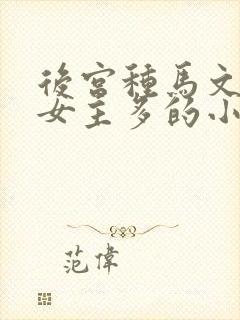 後宮種馬文
女主多的小
范偉